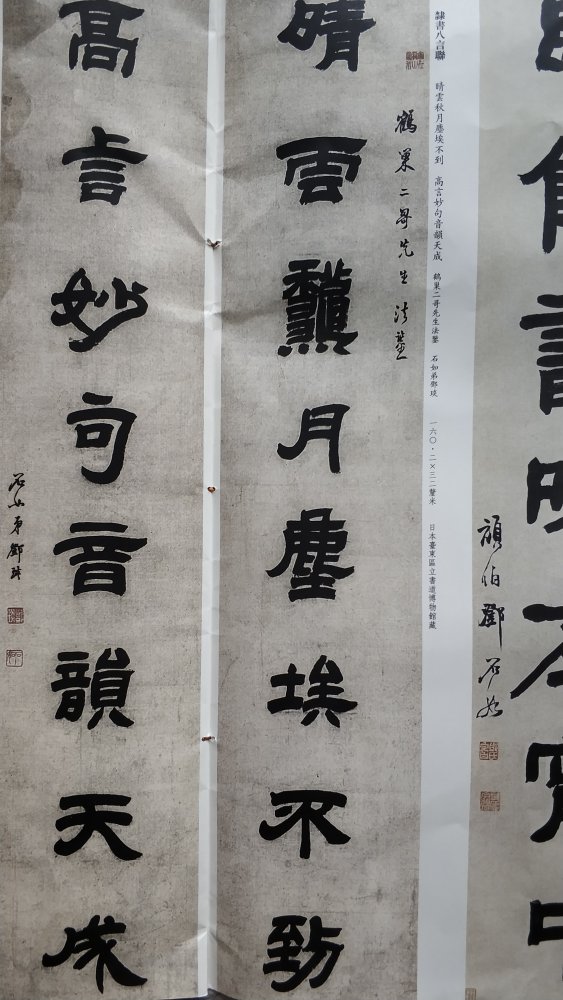 頑伯鄧石如
隸書八言聯 晴雲秋月塵埃不到 高言妙句音韻天成 鶴巢二哥先生法鑒 石如弟鄧琰 一六〇·二×三二釐米 日本臺東區立書道博物館藏
鶴巢二哥先生法鑒
晴雲龝月塵埃不到
高言妙句音韻天成
石如弟鄧琰